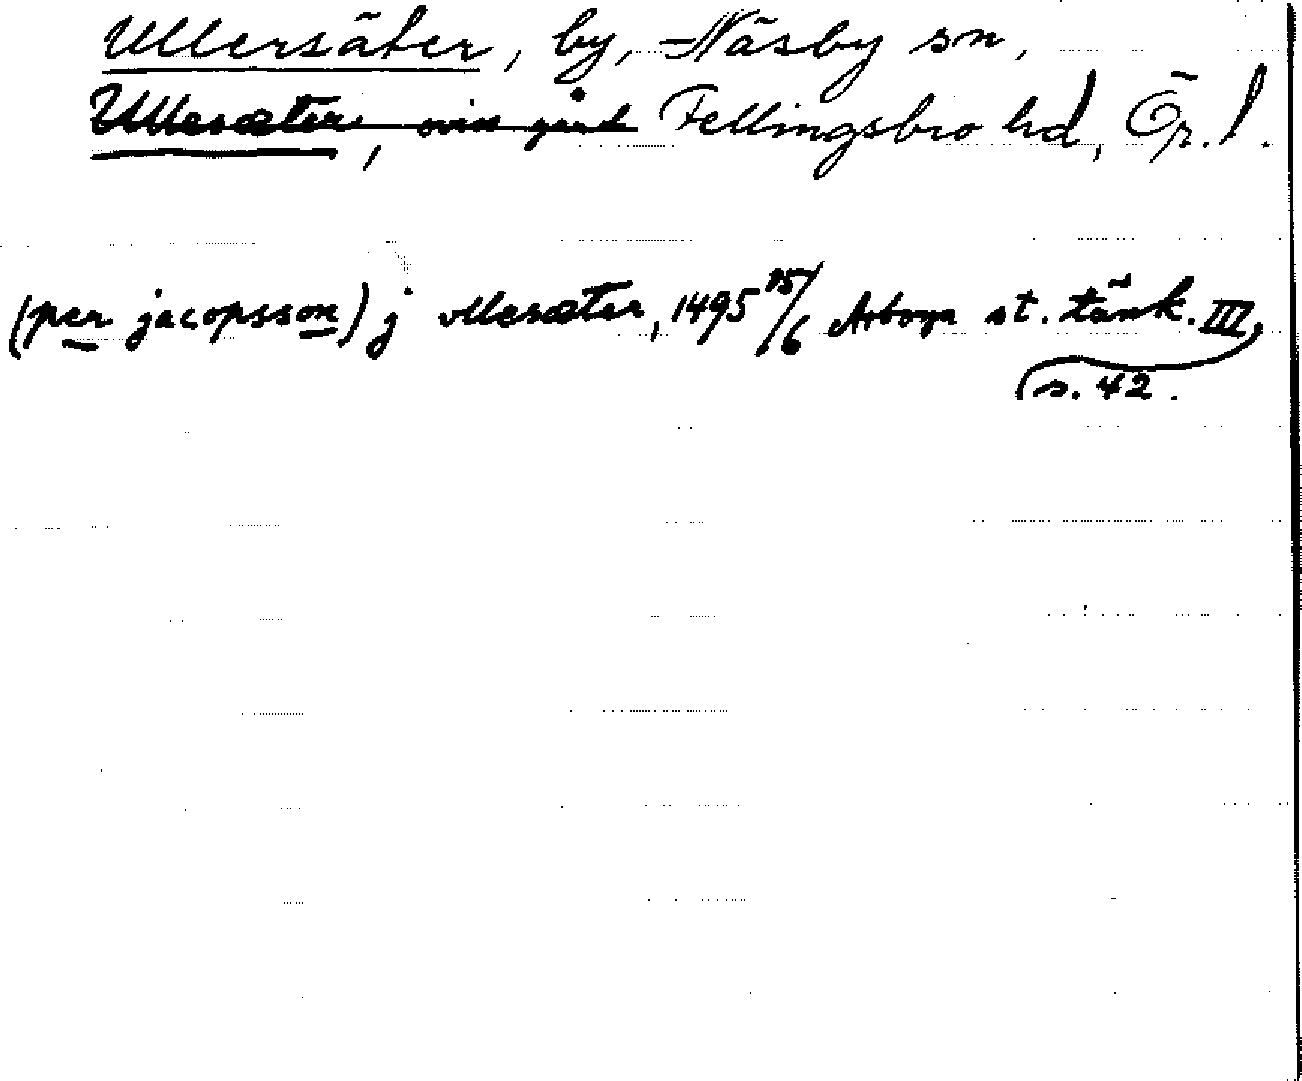 Ullersäter, by, Näsby sn,
Ullesæter, ovisst gård Fellingsbro hd, Ör. l.
(per jacopsson) j vllesæter, 1495 15/6 Arboga st. tänk. III,
s. 42.